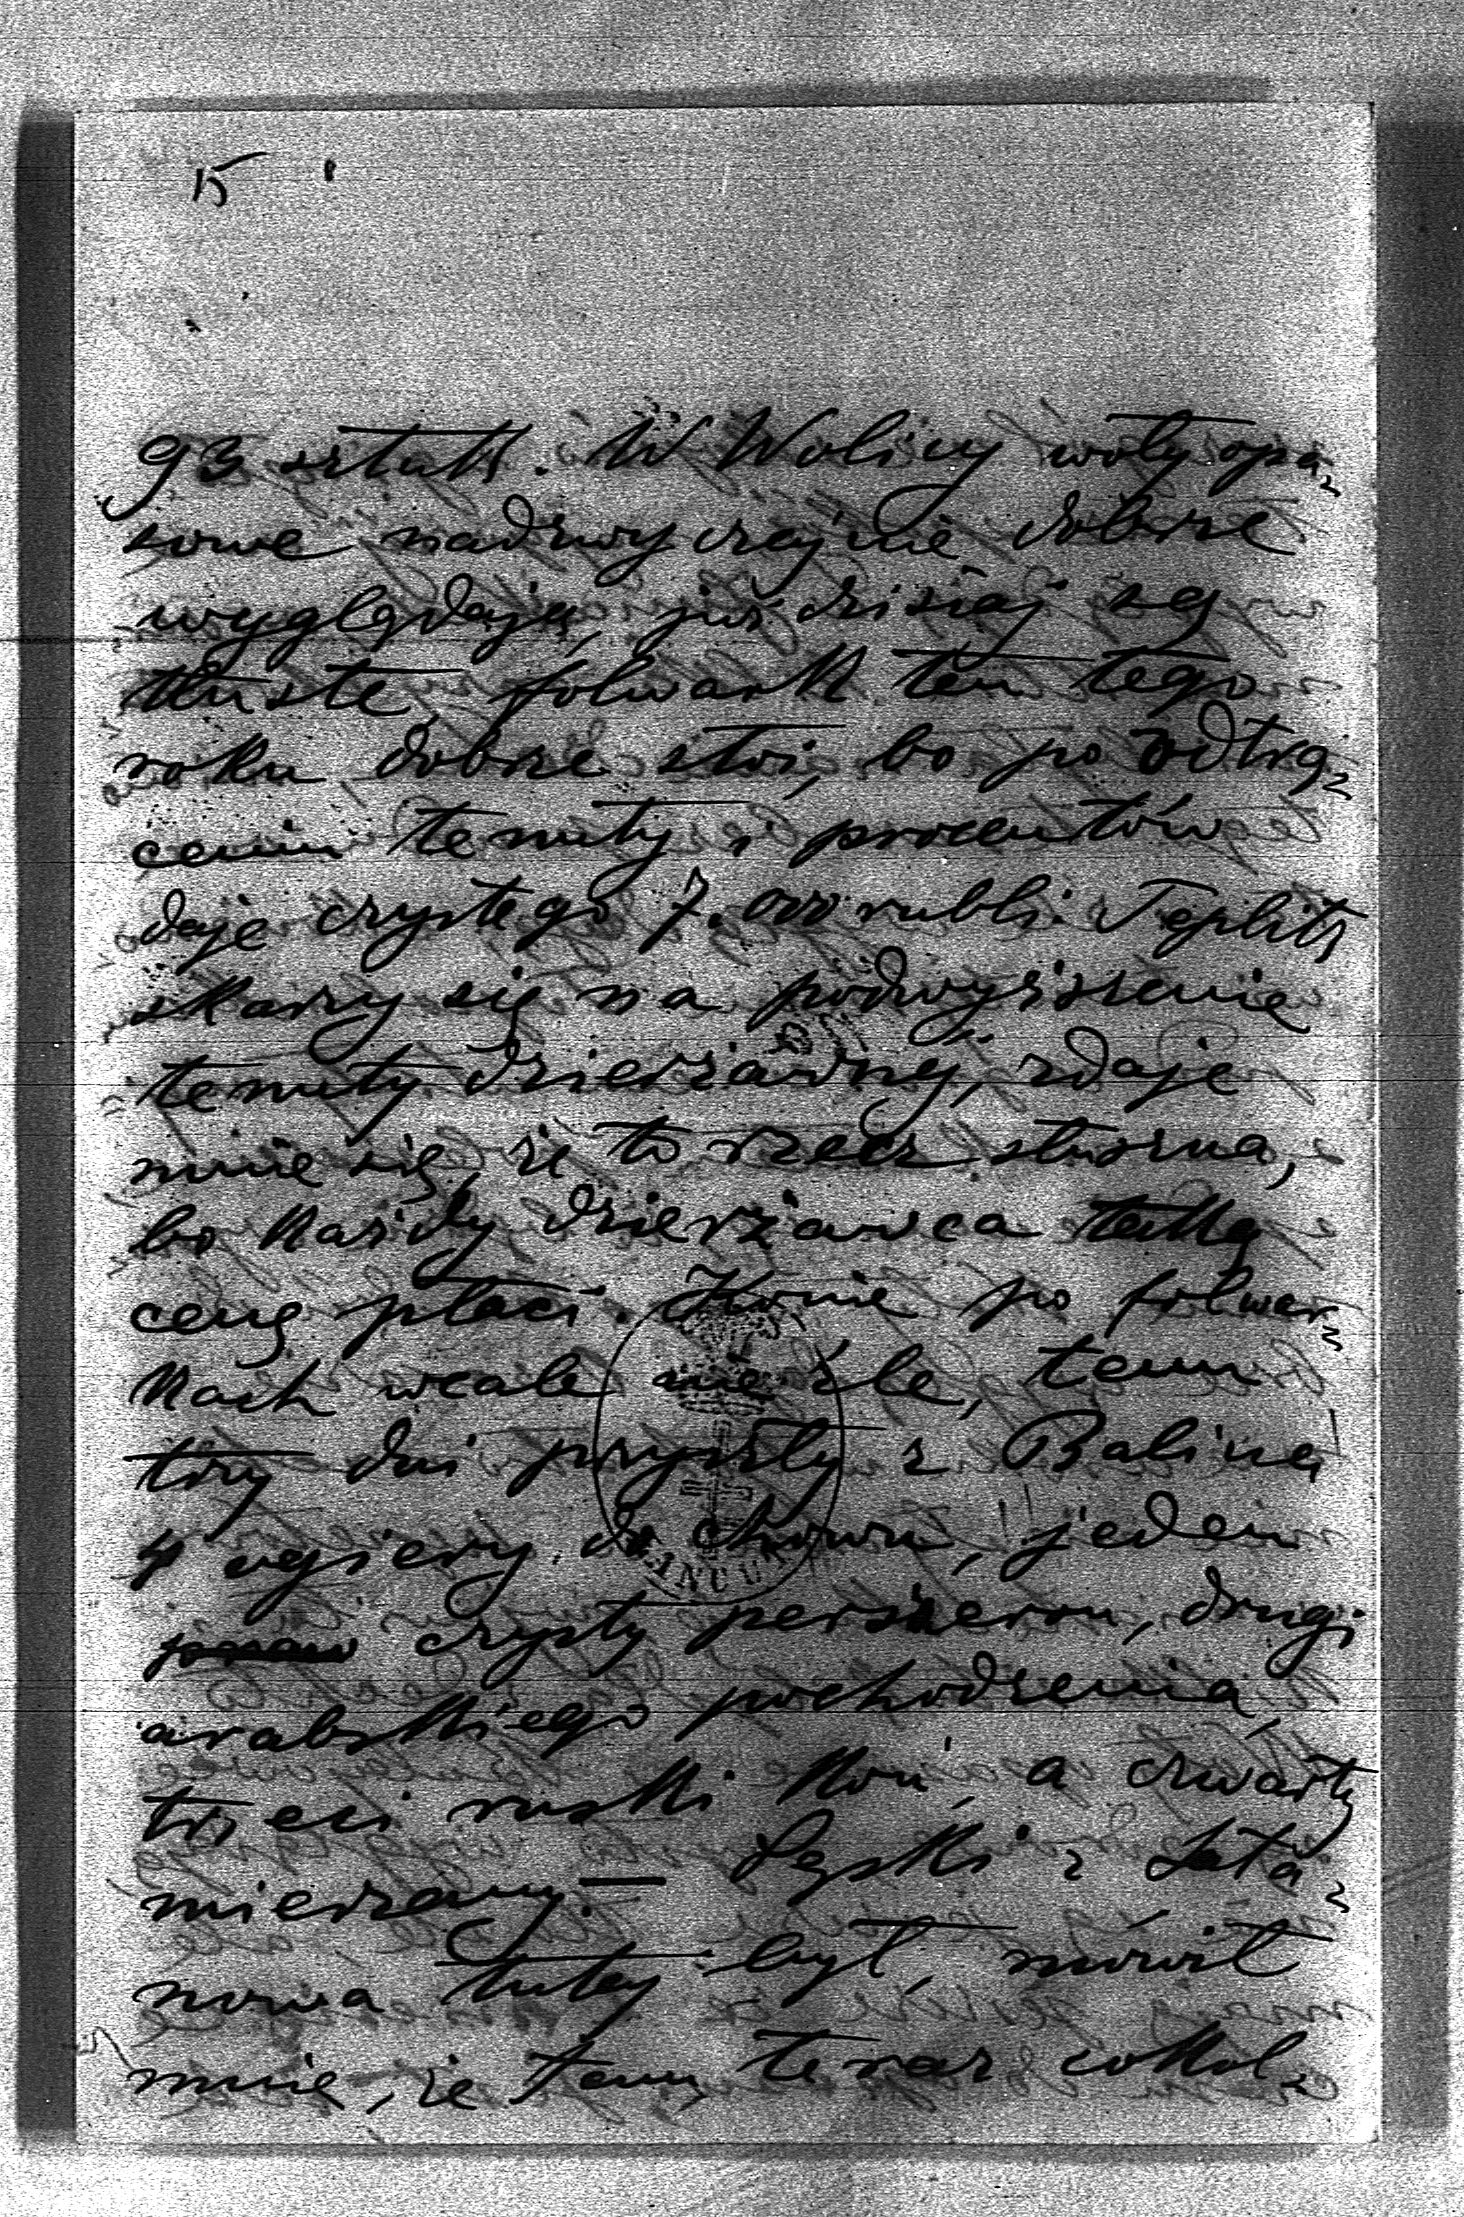 15
93 sztuk. W Wolicy woły opa-
sowe nadzwyczajnie dobrze
wyglądają, już dzisiaj są
tłuste, folwark ten tego
roku dobrze stoi, bo po odtrą-
ceniu tenuty i procentów
daje czystego 7.000 rubli. Teplitz
skarży się na podwyższenie
tenuty dzierżawnej, zdaje
mnie się, że to rzecz słuszna,
bo każdy dzierżawca taką
cenę płaci. Konie po folwar-
kach wcale nie źle, temu
trzy dni przyszły z Balina
4 ogiery do chowu, jeden
czysty perszeron, drugi
arabskiego pochodzenia,
trzeci ruski koń, a czwarty
mierzawy. — Łęski z
nowa tutaj był, mówił
mnie, że tam teraz cokol-
ŁAŃCUT